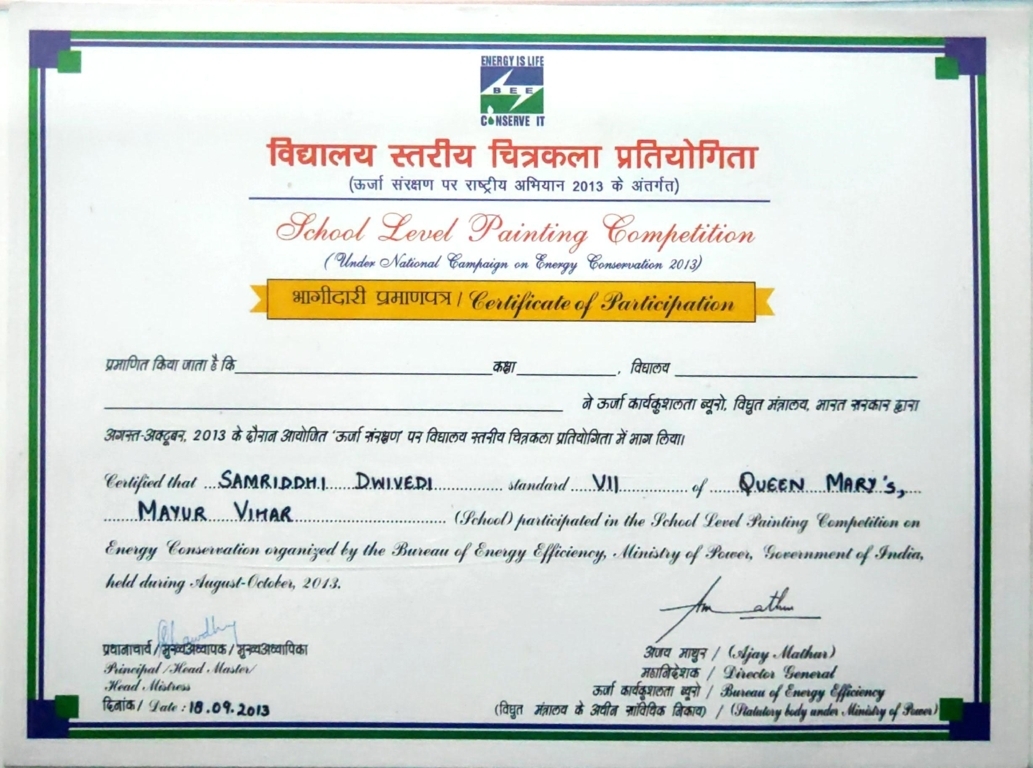 ENERGY IS LIFE
BEE
CONSERVE IT
विद्यालय स्तरीय चित्रकला प्रतियोगिता
(ऊर्जा संरक्षण पर राष्ट्रीय अभियान 2013 के अंतर्गत)
School Level Painting Competition
(Under National Campaign on Energy Conservation 2013)
भागीदारी प्रमाणपत्र / Certificate of Participation
प्रमाणित किया जाता है कि कक्षा , विद्यालय
ने ऊर्जा कार्यकुशलता ब्यूरो, विद्युत मंत्रालय, भारत सरकार द्वारा
अगस्त-अक्टूबर, 2013 के दौरान आयोजित 'ऊर्जा संरक्षण' पर विद्यालय स्तरीय चित्रकला प्रतियोगिता में भाग लिया।
Certified that SAMRIDDHI DWIVEDI standard VII of QUEEN MARY'S,
MAYUR VIHAR (School) participated in the School Level Painting Competition on
Energy Conservation organized by the Bureau of Energy Efficiency, Ministry of Power, Government of India,
held during August-October, 2013.
प्रधानाचार्य / मुख्यअध्यापक / मुख्यअध्यापिका
Principal / Head Master/
Head Mistress
दिनांक / Date : 18.09.2013
अजय माथुर / (Ajay Mathur)
महानिदेशक / Director General
ऊर्जा कार्यकुशलता ब्यूरो / Bureau of Energy Efficiency
(विद्युत मंत्रालय के अधीन सांविधिक निकाय) / (Statutory body under Ministry of Power)